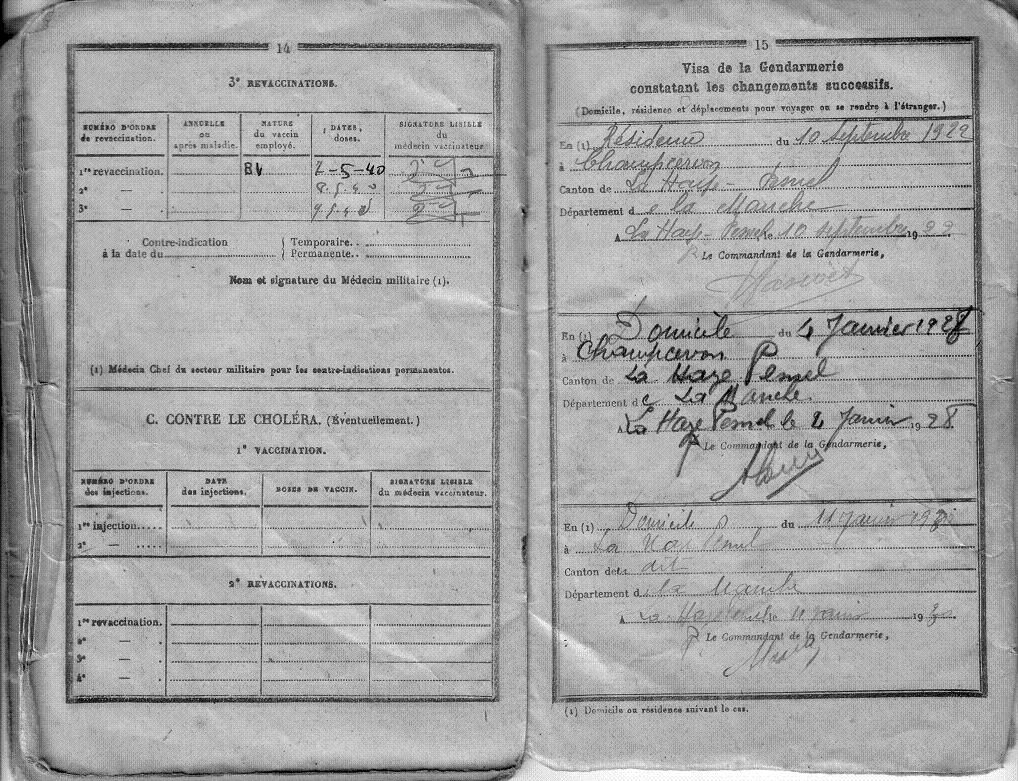 14
3° REVACCINATIONS.
NUMÉRO D'ORDRE de revaccination.
ANNUELLE ou après maladie.
NATURE du vaccin employé.
DATES, doses.
SIGNATURE LISIBLE du médecin vaccinateur.
1re revaccination. 7-5-40
2e — 8.5.40
3e — 9.5.40
Contre-indication à la date du
Temporaire..
Permanente..
Nom et signature du Médecin militaire (1).
(1) Médecin Chef du secteur militaire pour les contre-indications permanentes.
C. CONTRE LE CHOLÉRA. (Éventuellement.)
1° VACCINATION.
NUMÉRO D'ORDRE des injections.
DATE des injections.
DOSES DE VACCIN.
SIGNATURE LISIBLE du médecin vaccinateur.
1re injection.....
2e — .....
2° REVACCINATIONS.
1re revaccination.
2e —
3e —
4e —
15
Visa de la Gendarmerie
constatant les changements successifs.
(Domicile, résidence et déplacements pour voyager ou se rendre à l'étranger.)
En (1) Résidence du 10 septembre 1922
à Champcervon
Canton de La Haye-Pesnel
Département de la Manche
A La Haye-Pesnel le 10 septembre 1922
Le Commandant de la Gendarmerie,
En (1) Domicile du 4 Janvier 1928
à Champcervon
Canton de La Haye Pesnel
Département de La Manche.
A La Haye Pesnel le 4 Janvier 1928
Le Commandant de la Gendarmerie,
En (1) Domicile du 11 Janvier
à La Haye Pesnel
Canton de dit
Département de la Manche
A La Haye Pesnel le 11 Janvier
Le Commandant de la Gendarmerie,
(1) Domicile ou résidence suivant le cas.